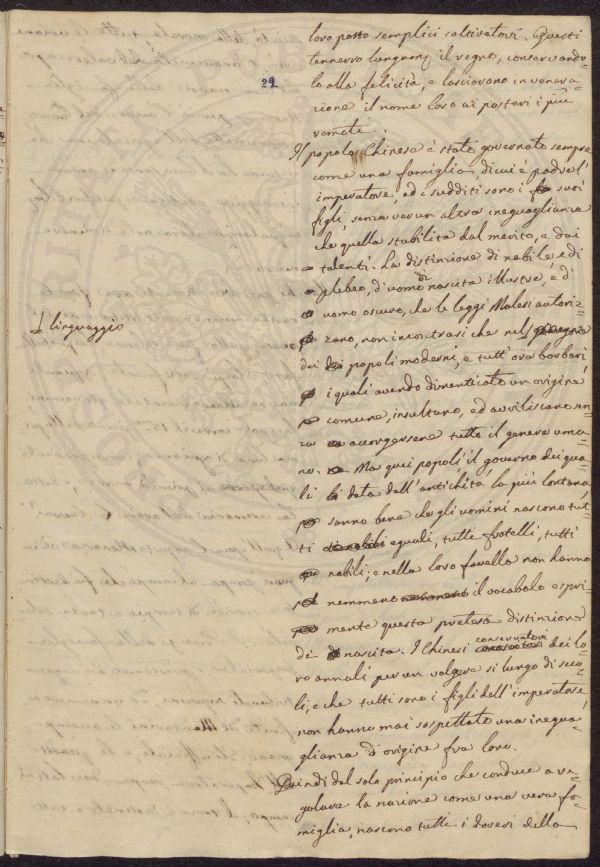 loro posto semplici coltivatori. Questi
tennero lungamte il regno, conservando
lo alla felicità, e lasciarono in venera
zione il nome loro ai posteri i più
remoti.
29
Il popolo Chinese è stato governato sempre
come una famiglia, di cui è padre l'
imperatore, ed i sudditi sono i suoi
figli, senza verun altra ineguaglianza
che quella stabilita dal merito, e dai
talenti. La distinzione di nobile, e di
plebeo, d'uomo di nascita illustre, e d'
uomo oscuro, che le leggi Malesi autoriz=
zano, non incontrasi che nel
⊥ linguaggio
dei popoli moderni, e tutt'ora barbari,
i quali avendo dimenticato un origine
comune, insultano, ed avviliscono sen
za accorgersene tutto il genere uma
no. Ma quei popoli il governo dei qua
li data dall'antichità la più lontana,
sanno bene che gli uomini nascono tut
ti eguali, tutti fratelli, tutti
nobili; e nella loro favella non hanno
nemmeno il vocabolo espri
mente questa pretesa distinzione
di nascita. I Chinesi conservatori dei lo
ro annali per un volgere si lungo di seco
li, e che tutti sono i figli dell'imperatore,
non hanno mai sospettato una inegua
glianza d'origine fra loro.
Quindi dal solo principio che conduce a re
golare la nazione come una vera fa
miglia, nascono tutti i doveri della